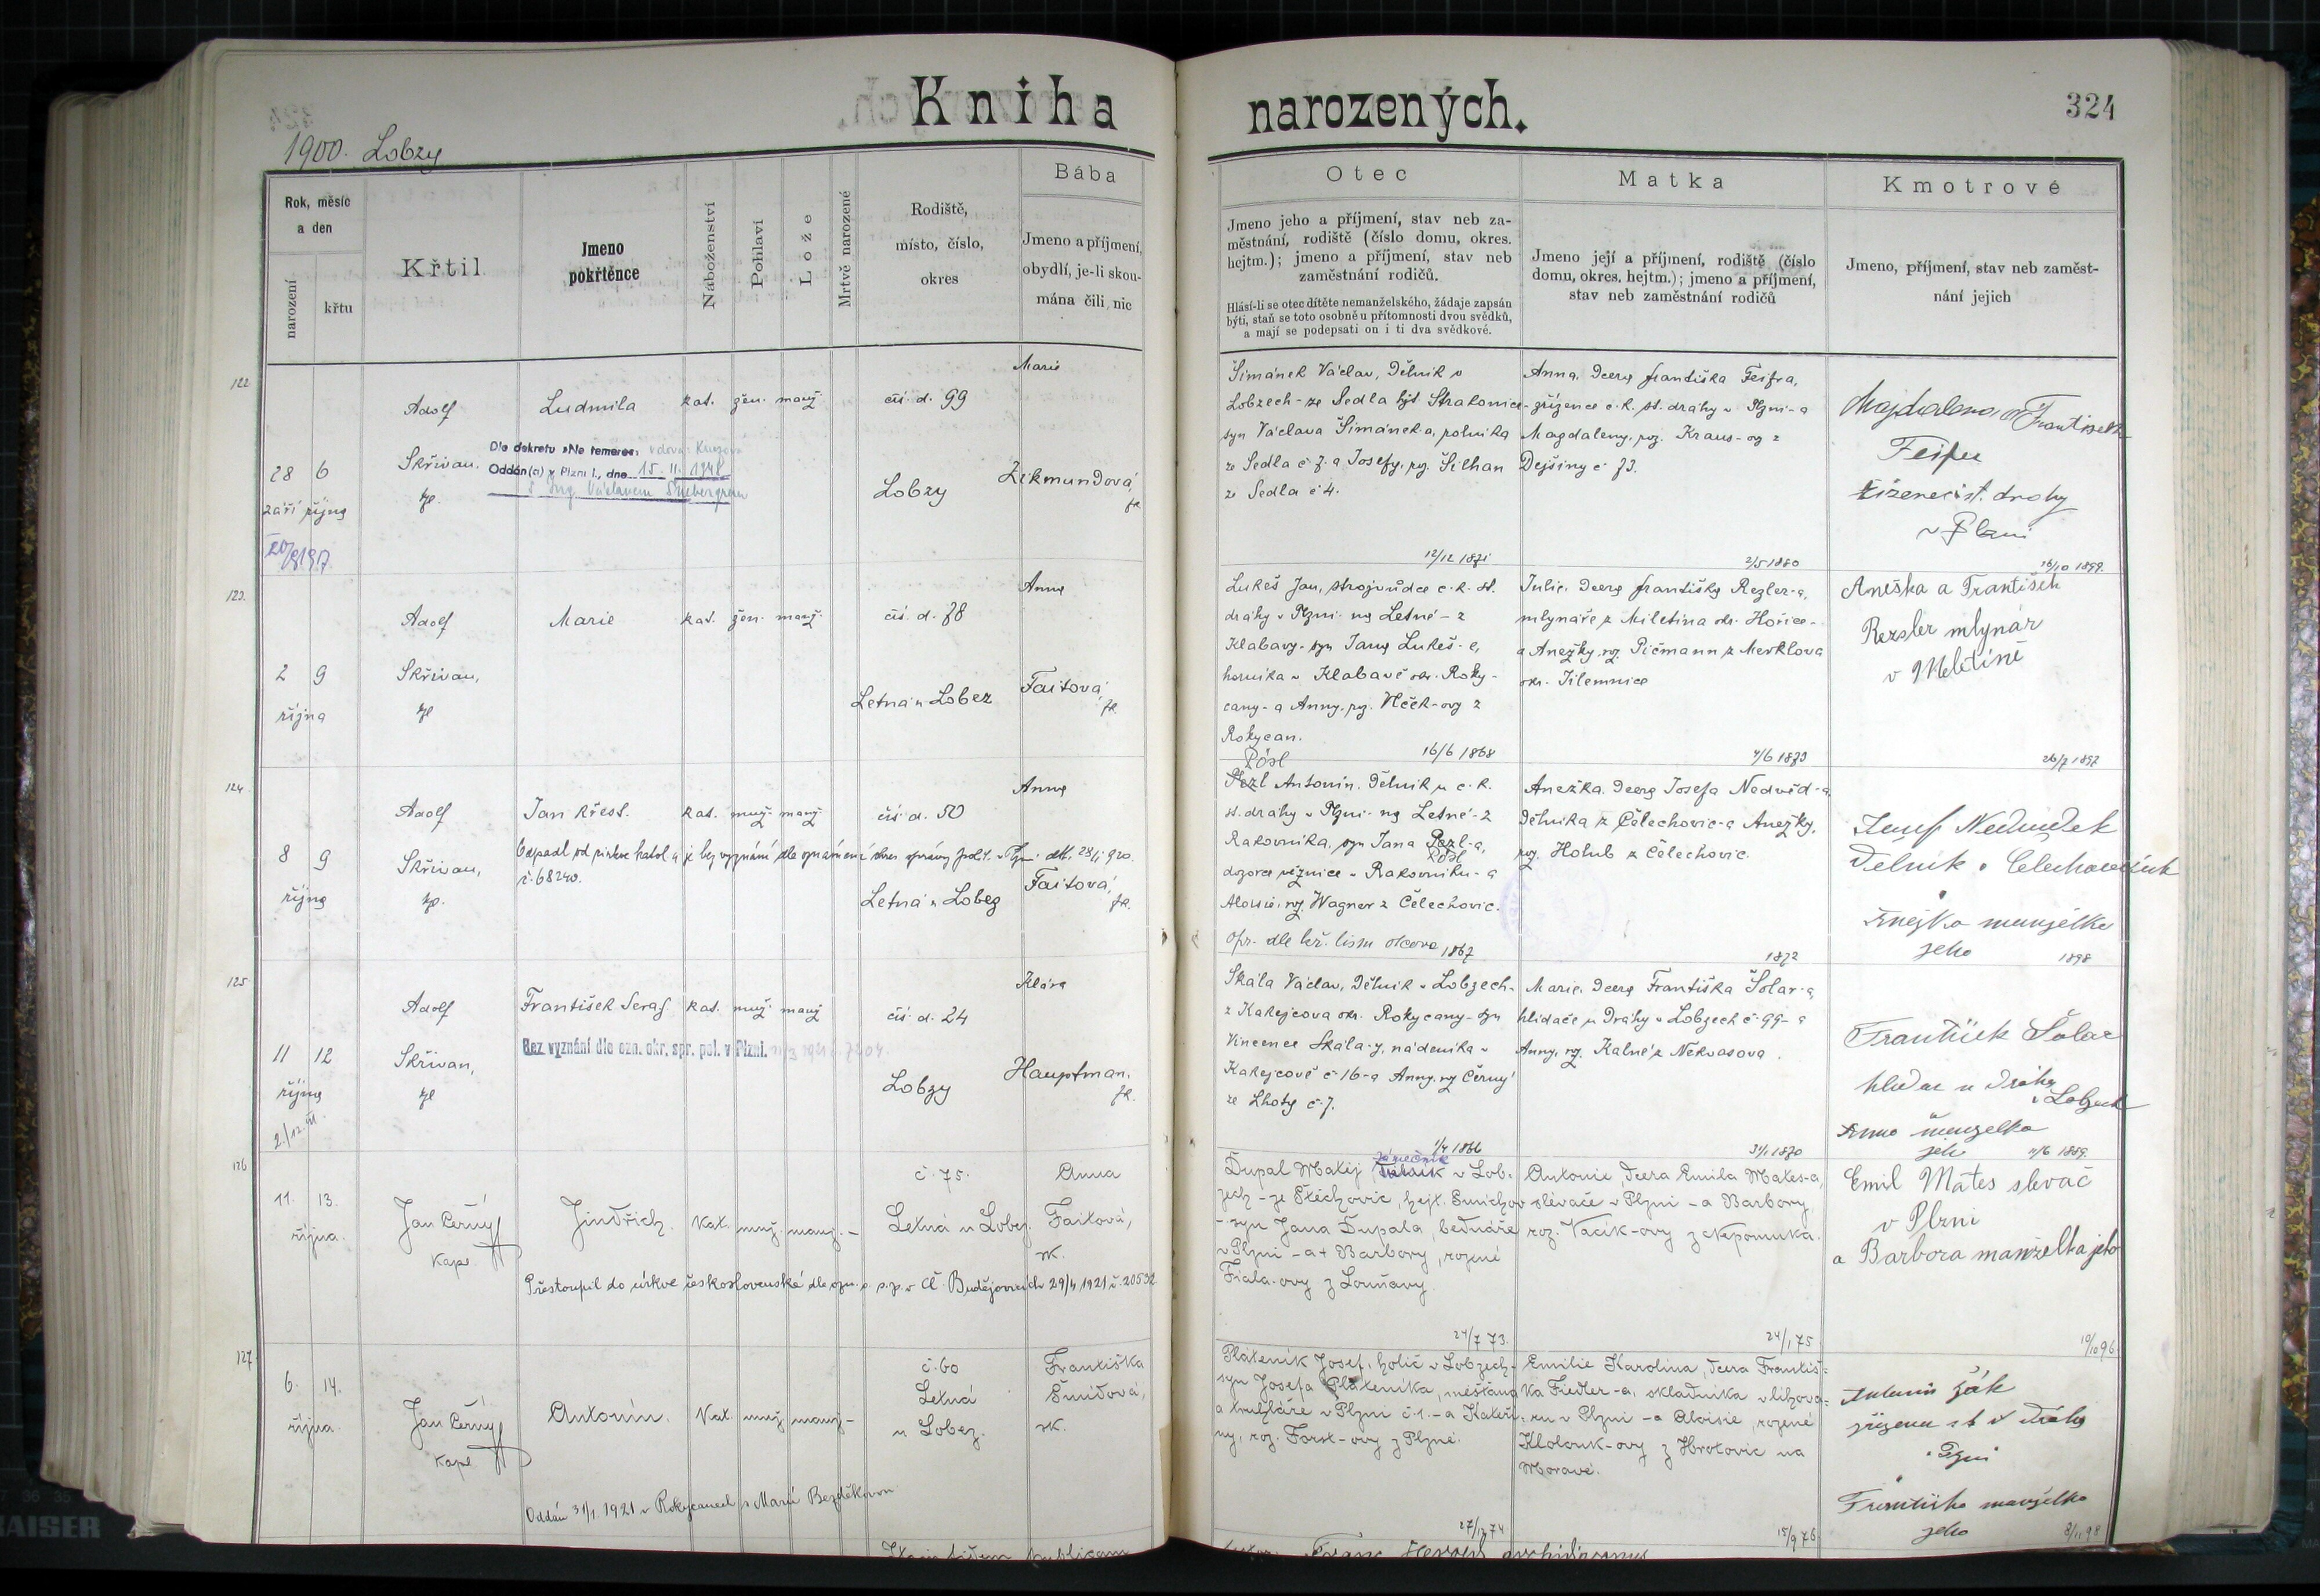 Kniha narozených.
324
1900. Lobzy
Rok, měsíc a den
narození
křtu
Křtil
Jmeno pokřtěnce
Náboženství
Pohlaví
Lože
Mrtvě narozené
Rodiště,
místo, číslo,
okres
Bába
Jmeno a příjmení,
obydlí, je-li skou-
mána čili nic
Otec
Jmeno jeho a příjmení, stav neb za-
městnání, rodiště (číslo domu, okres.
hejtm.); jmeno a příjmení, stav neb
zaměstnání rodičů.
Hlásí-li se otec dítěte nemanželského, žádaje zapsán
býti, staň se toto osobně u přítomnosti dvou svědků,
a mají se podepsati on i ti dva svědkové.
Matka
Jmeno její a příjmení, rodiště (číslo
domu, okres. hejtm.); jmeno a příjmení,
stav neb zaměstnání rodičů
Kmotrové
Jmeno, příjmení, stav neb zaměst-
nání jejich
122
28 6
září října
Adolf
Skřivan,
Ludmila
kat. žen. manž.
Dle dekretu »Ne temere«
Oddán(a) v Plzni I., dne 15. II. 1948
čís. d. 99
Lobzy
Marie
Zikmundová,
Šimánek Václav, Dělník v
Lobzech - ze Sedla hjt Strakonice -
syn Václava Šimánek-a, rolníka
ze Sedla č 7. a Josefy, roz. Šilhan
ze Sedla č 4.
12/12 1871
Anna, dcera Františka Feifra,
zřízence c. k. st. dráhy v Plzni - a
Magdaleny, roz. Kraus-ov z
Dejšiny č 73.
2/5 1880
Magdalena a František
Feifer
st. drahy
v Plzni
18/10 1899.
123.
2 9
října
Adolf
Skřivan,
Marie
kat. žen. manž.
čís. d. 78
Letná u Lobez
Anna
Faitová,
Lukeš Jan, strojvůdce c. k. st.
dráhy v Plzni - na Letné - z
Klabavy - syn Jana Lukeš-e,
horníka v Klabavě okr. Roky-
cany - a Anny, roz. Vlček-ovy z
Rokycan.
16/6 1868
Julie, dcera Františka Rezler-a,
mlynáře z Miletína okr. Hořice -
a Anežky, roz. Pičmann z Merklova
okr. Jilemnice
4/6 1873
Aneška a František
Rezsler mlynář
v Meletíně
26/7 1897
124
8 9
října
Adolf
Skřivan,
Jan Křest.
kat. muž. manž.
Odpadl od církve katol. a je bez vyznání dle oznámení okres. správy polit. v Plzni dtt. 28/1 920.
č. 68240.
čís. d. 50
Letná u Lobez
Anna
Faitová,
Pösl
Pezl Antonín, Dělník u c. k.
st. dráhy v Plzni - na Letné - z
Rakovníka, syn Jana Pezl-a,
Pösl
dozorce věznice v Rakovníku - a
Aloisie, roz. Wagner z Čelechovic.
opr. dle kř. listu otcova 1867
Anežka, dcera Josefa Nedvěd-a,
dělníka z Čelechovic - a Anežky,
roz. Holub z Čelechovic.
1872
Josef Nedvídek
Dělník v
a
Anežka manželka
jeho 1898
125
11 12
října
Adolf
Skřivan,
František Seraf.
kat. muž. manž
Bez vyznání dle ozn. okr. spr. pol. v Plzni.
čís. d. 24
Lobzy
Klára
Hauptman.
Skála Václav, Dělník v Lobzech -
z Kakejcova okr. Rokycany - syn
Vincence Skála-y, nádeníka v
Kakejcově č 16 - a Anny, roz Černý
ze Lhoty č. 7.
1/4 1866
Marie, dcera Františka Šolar-a,
hlídače u dráhy v Lobzech č 99 - a
Anny, roz. Kalné z Nekvasova.
31/1 1870
František Šolar
hlídač u dráhy
v Lobzech
a
Anna manzelka
jeho 11/6 1889.
126
11. 13.
října.
Jan Černý
kapl.
Jindřich.
kat. muž. manž. -
Přestoupil do církve československé dle ozn. o. s. p. v Č. Budějovicích 29/4 1921 č. 20532
č. 75.
Letná u Lobez.
Anna
Faitová,
zk.
zámečník
Ďupal Matěj v Lob-
zech - ze Štěchovic, hejt. Smíchov
- syn Jana Ďupala, bednáře
v Plzni - a + Barbory, rozené
Fiala-ovy z Louňavy
24/7 73.
Antonie, dcera Emila Mates-a,
slévače v Plzni - a Barbory
roz. Vacík-ovy z Nepomuka.
24/1 75
Emil Mates slevač
v Plzni
a Barbora manželka jeho
19/10 96.
127
6. 14.
října.
Jan Černý
kapl
Antonín.
Kat. muž. manž -
Oddán 31/1. 1921 v Rokycanech s Marií Bezděkovou
č. 60
Letná
u Lobez.
Františka
Šmidová,
zk.
Pláteník Josef, holič v Lobzech -
syn Josefa Pláteníka, měšťana
a truhláře v Plzni č. 1. - a Kateři-
ny, roz. Forst-ovy z Plzně.
Emilie Karolina, dcera Františ-
ka Fiedler-a, skladníka v lihova-
ru v Plzni - a Aloisie, rozené
Klolouk-ovy z Hrotovic na
Moravě.
15/9 76
Antonín Žák
v Plzni
a
Františka manželka
jeho 8/11 98